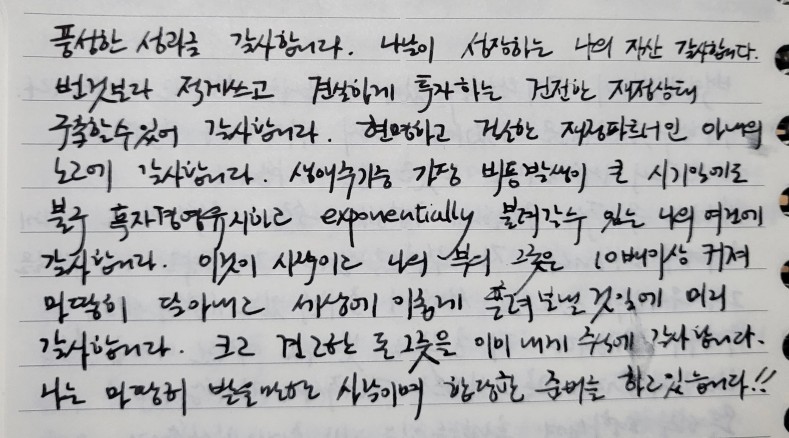 풍성한 성과급 감사합니다. 나날이 성장하는 나의 자산 감사합니다.
번것보다 적게쓰고 견실하게 투자하는 건전한 재정상태
구축할수있어 감사합니다. 현명하고 건실한 재정파트너인 아내의
노고에 감사합니다. 생애주기중 가장 비용발생이 큰 시기임에도
불구 흑자경영유지하고 exponentially 불려갈수 있는 나의 여건에
감사합니다. 이것이 시작이고 나의 부의 그릇은 10배이상 커져
마땅히 담아내고 세상에 이롭게 흘려보낼것임에 미리
감사합니다. 크고 견고한 돈그릇을 이미 내게 주심에 감사합니다.
나는 마땅히 받을만한 사람이며 합당한 준비를 하고있습니다!!